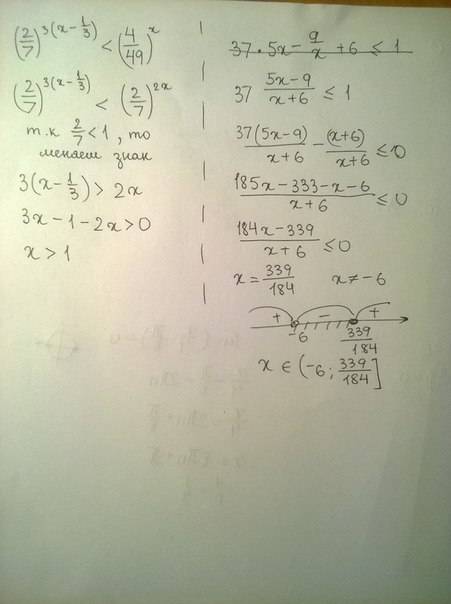 (2/7)^3(x-1/3) < (4/49)^x
(2/7)^3(x-1/3) < (2/7)^2x
т.к 2/7 < 1, то
меняем знак
3(x-1/3) > 2x
3x-1-2x>0
x > 1
37·5x-9/x+6 ≤ 1
37 5x-9/x+6 ≤ 1
37(5x-9)/x+6 - (x+6)/x+6 ≤ 0
185x-333-x-6/x+6 ≤ 0
184x-339/x+6 ≤ 0
x = 339/184 x ≠ -6
+ - +
-6 339/184
x ∈ (-6; 339/184]